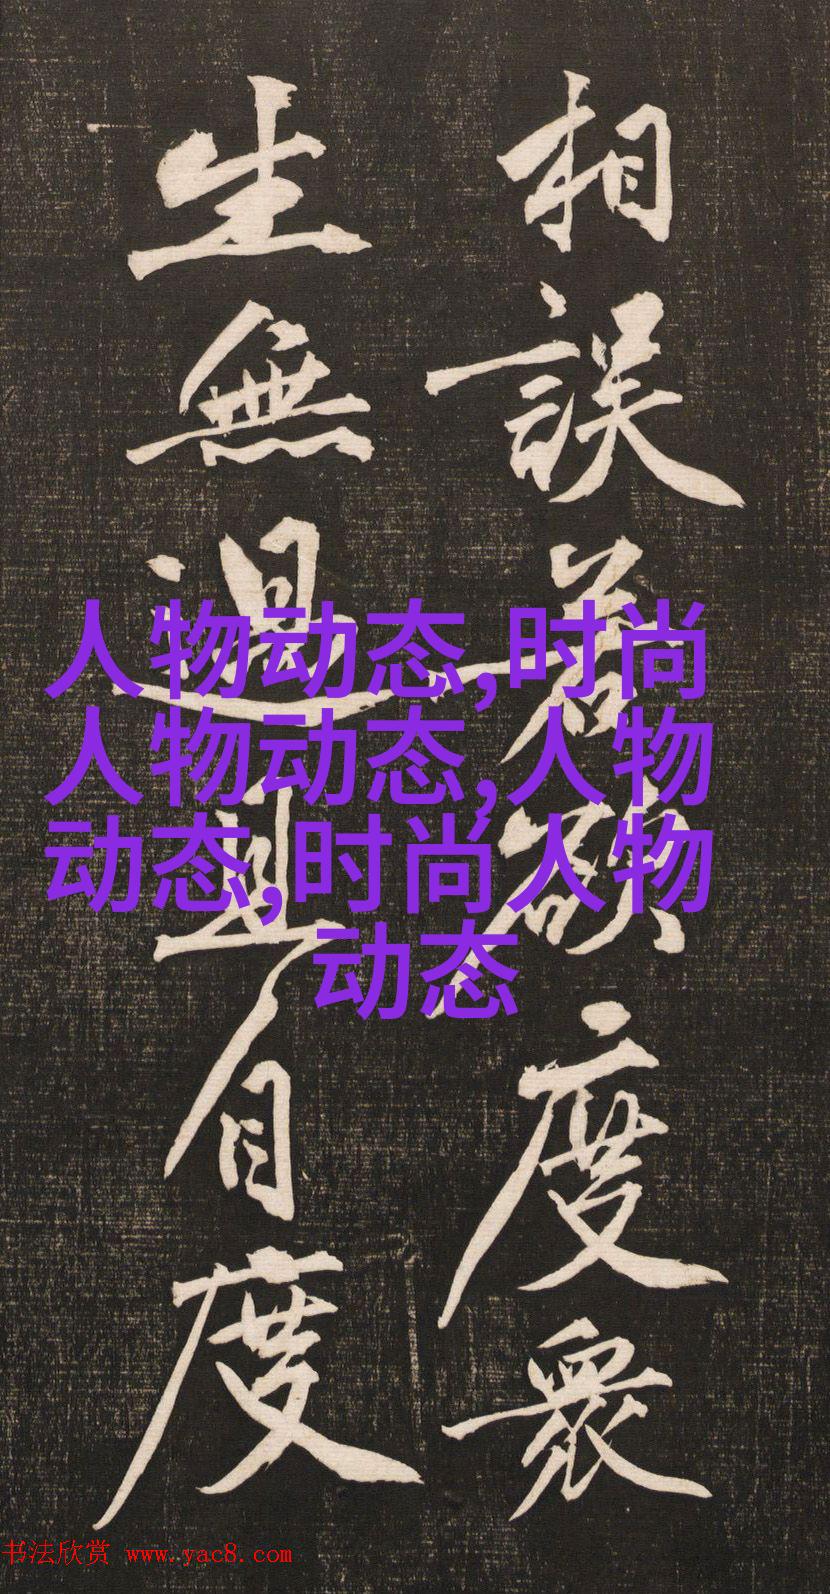 相誤若欲度衆
生無過且自度
人物动态,时尚
人物动态,人物
动态,时尚人物
动态
书法欣赏 www.yac8.com